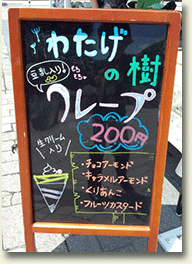 わたげ
の樹
豆乳入り♪
クレープ
200円
生クリーム
入り
・チョコアーモンド
・キャラメルアーモンド
・くりあんこ
・フルーツカスタード